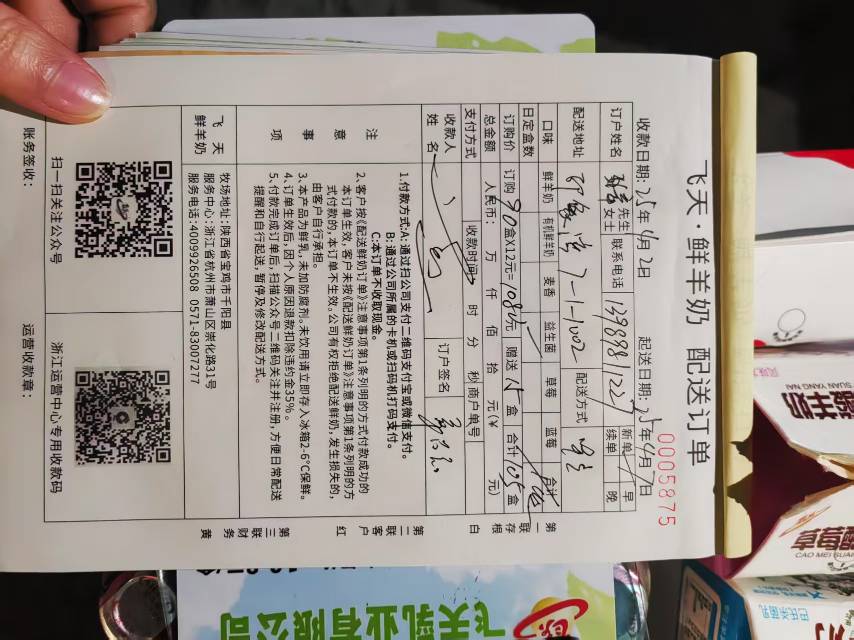 飞天·鲜羊奶 配送订单
0005875
收款日期:25年4月2日 起送日期:25年4月7日
订户姓名 先生 女士 联系电话 13989811227 新单 续单 早 晚
配送地址 7-1-1002 配送方式
口味 鲜羊奶 有机鲜羊奶 麦香 益生菌 草莓 蓝莓 合计
日定盒数
订购价 订购90盒X12元=1080元 赠送15盒 合计105盒
总金额 人民币: 万 仟 佰 拾 元(¥ 元)
支付方式 收款时间: 时 分 秒 商户单号
收款人姓名 订户签名
注意事项
1.付款方式:A:通过扫公司支付二维码支付宝或微信支付。
B:通过公司所属的卡机或扫码机打码支付。
C:本订单不收取现金。
2、客户按《配送鲜奶订单》注意事项第1条列明的方式付款成功的
本订单生效,客户未按《配送鲜奶订单》注意事项第1条列明的方
式付款的,本订单不生效。公司有权拒绝配送鲜奶,发生损失的,
由客户自行承担。
3、本产品为鲜乳,未加防腐剂。未饮用请立即存入冰箱2-6℃保鲜。
4、订单生效后,因个人原因退款扣除违约金35%。
5、付款完成订单后,扫描公众号二维码关注并注册,方便日常配送
提醒和自行起送,暂停及修改配送方式。
飞天鲜羊奶
牧场地址:陕西省宝鸡市千阳县
服务中心:浙江省杭州市萧山区崇化路31号
服务电话:4009926508 0571-83007217
扫一扫关注公众号
浙江运营中心专用收款码
账务签收:
运营收款章:
第一联存根 白
第二联客户 红
第三联财务 黄
飞天乳业有限公司
酸羊奶
SUAN YANG NAI
草莓酸
CAO MEI SUAN